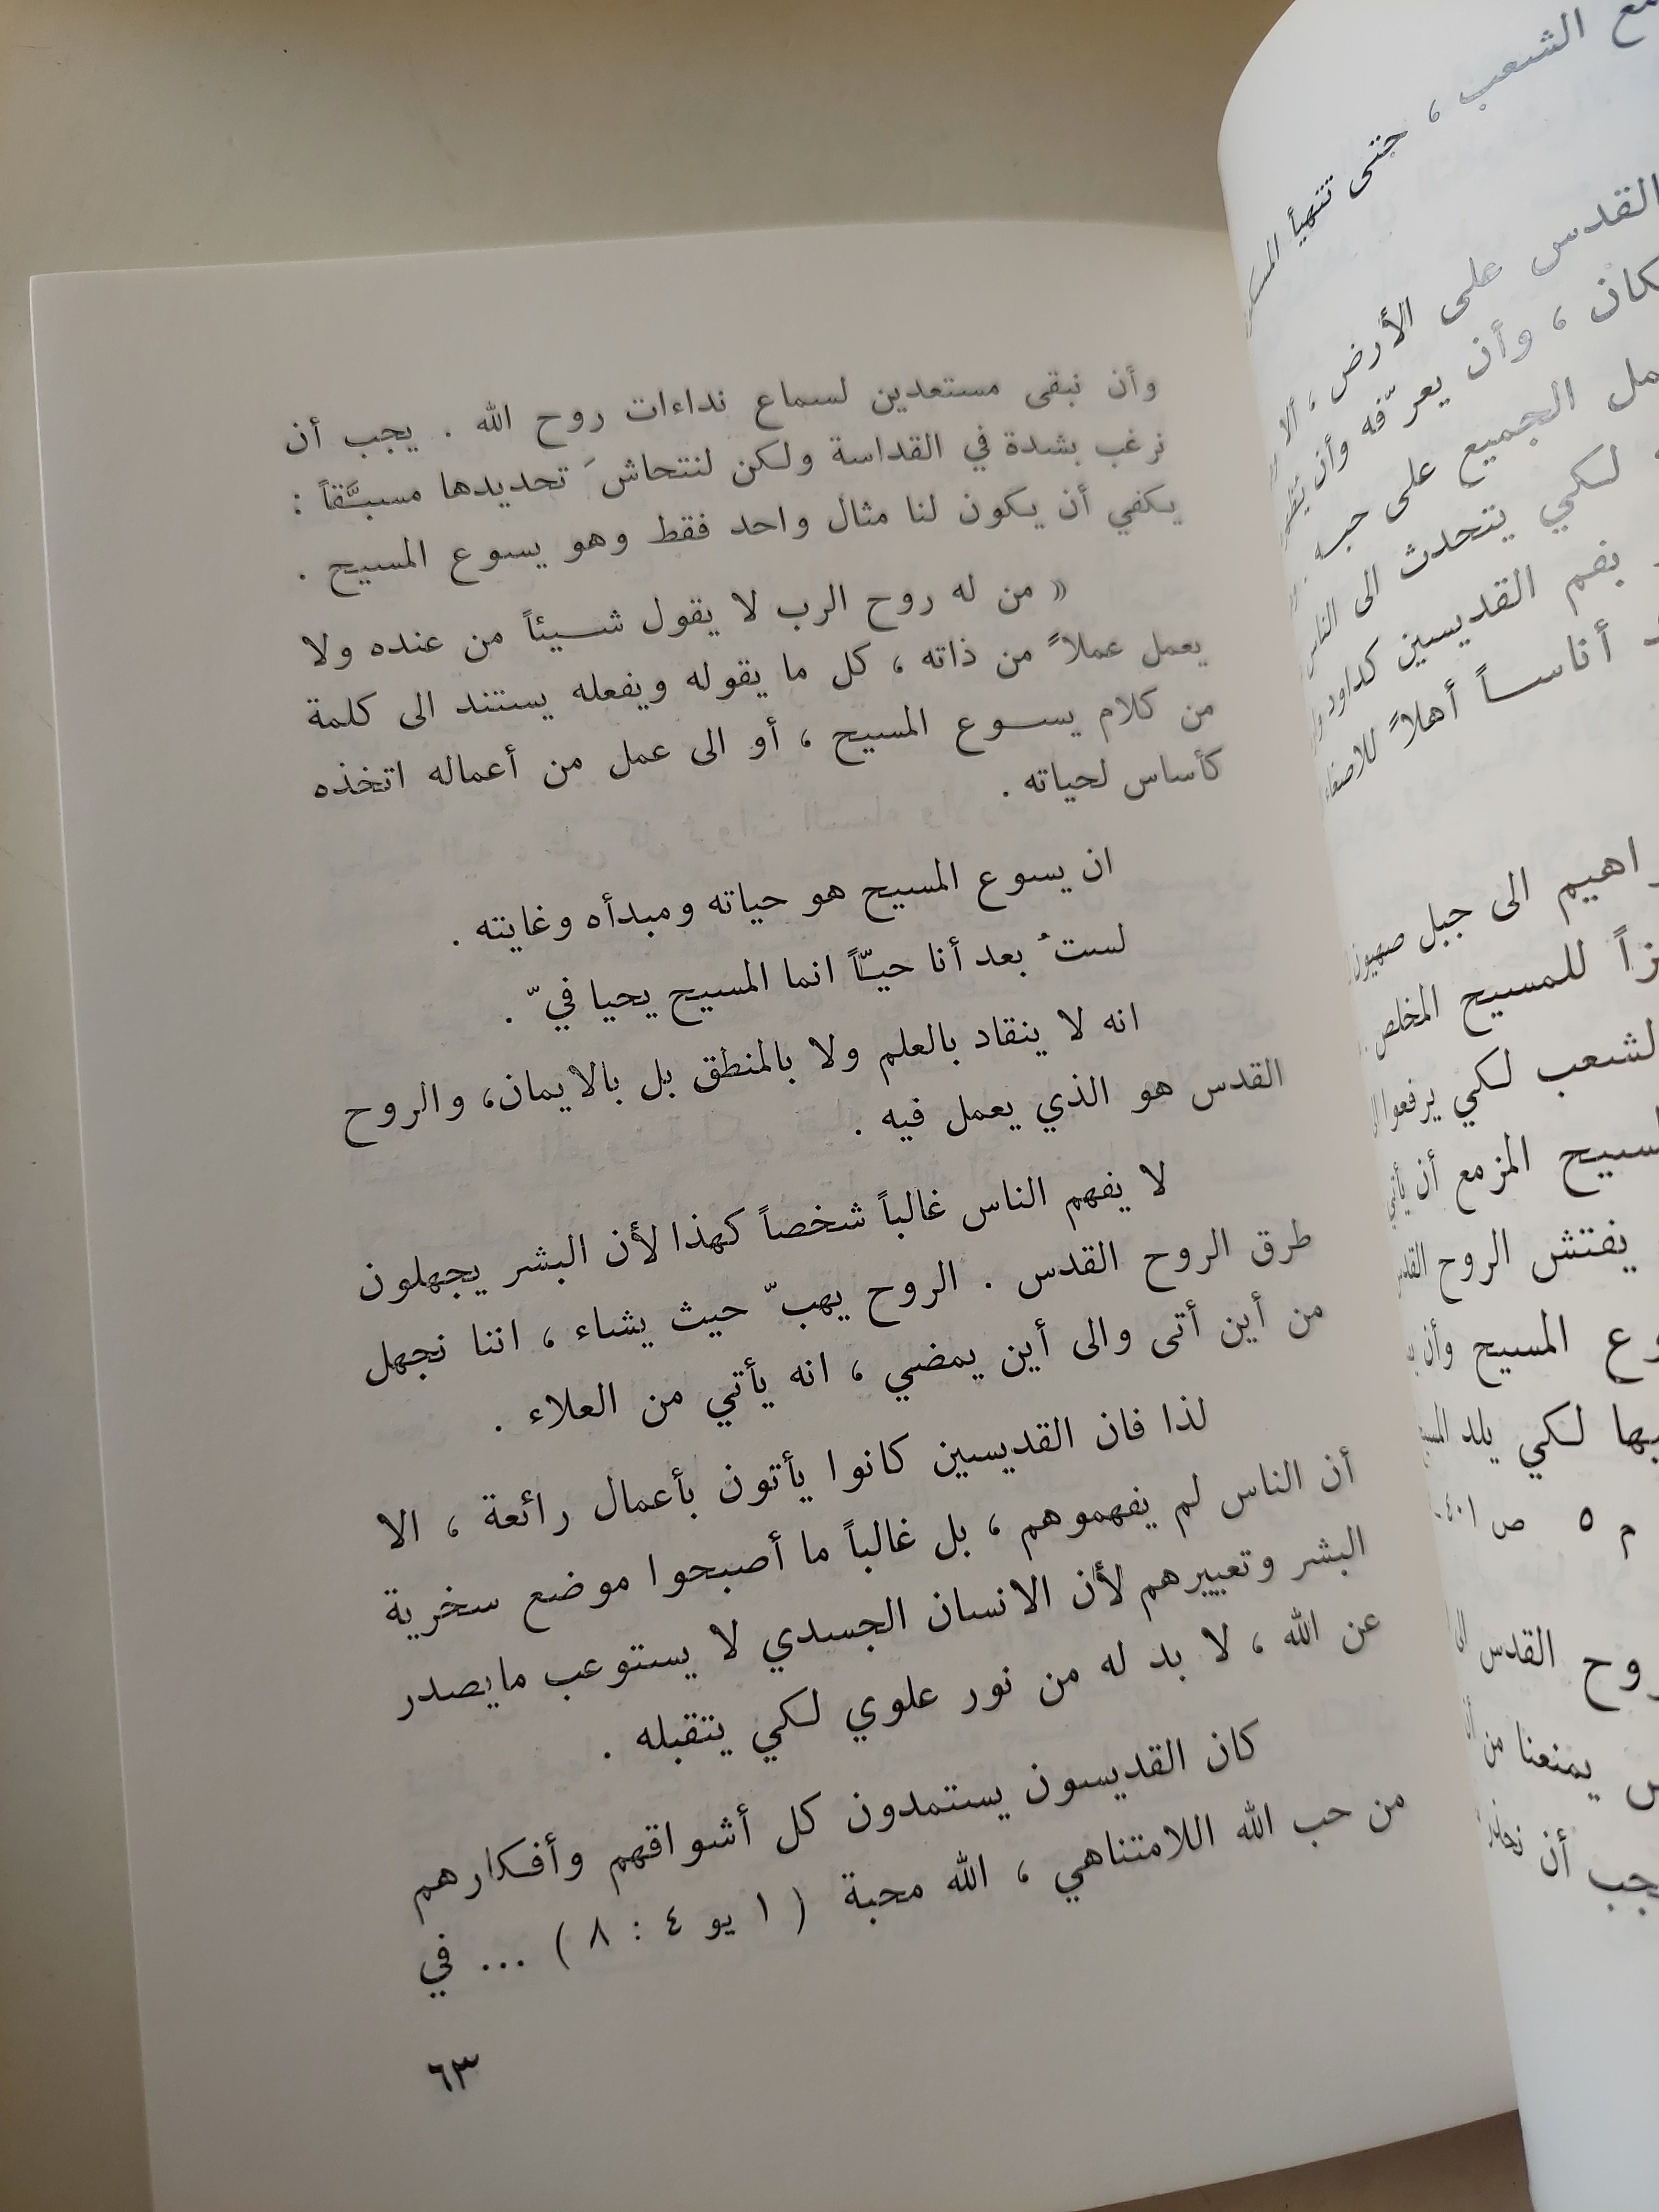 وأن نبقى مستعدين لسماع نداءات روح الله . يجب أن
نرغب بشدة في القداسة ولكن لنتحاشَ تحديدها مسبَّقاً :
يكفي أن يكون لنا مثال واحد فقط وهو يسوع المسيح .
« من له روح الرب لا يقول شيئاً من عنده ولا
يعمل عملاً من ذاته ، كل ما يقوله ويفعله يستند الى كلمة
من كلام يسوع المسيح ، أو الى عمل من أعماله اتخذه
كأساس لحياته .
ان يسوع المسيح هو حياته ومبدأه وغايته .
لستُ بعد أنا حيّاً انما المسيح يحيا فيّ .
انه لا ينقاد بالعلم ولا بالمنطق بل بالايمان، والروح
القدس هو الذي يعمل فيه .
لا يفهم الناس غالباً شخصاً كهذا لأن البشر يجهلون
طرق الروح القدس . الروح يهبّ حيث يشاء ، اننا نجهل
من أين أتى والى أين يمضي ، انه يأتي من العلاء .
لذا فان القديسين كانوا يأتون بأعمال رائعة ، الا
أن الناس لم يفهموهم ، بل غالباً ما أصبحوا موضع سخرية
البشر وتعييرهم لأن الانسان الجسدي لا يستوعب مايصدر
عن الله ، لا بد له من نور علوي لكي يتقبله .
كان القديسون يستمدون كل أشواقهم وأفكارهم
من حب الله اللامتناهي ، الله محبة ( ١ يو ٤ : ٨ ) ... في
٦٣
الشعب ، حتى تتهيأ
القدس على الأرض ، ألا
كان ، وأن يعرّفه وأن
الجميع على حبه
لكي يتحدث الى الناس
بفم القديسين كداود
أناساً أهلاً للاصغاء
الى جبل صهيون
للمسيح المخلص
لكي يرفعوا
المزمع أن يأتي
يفتش الروح القدس
المسيح وأن
لكي يلد
م ٥ ص ٤٠١
القدس
يمنعنا من
أن